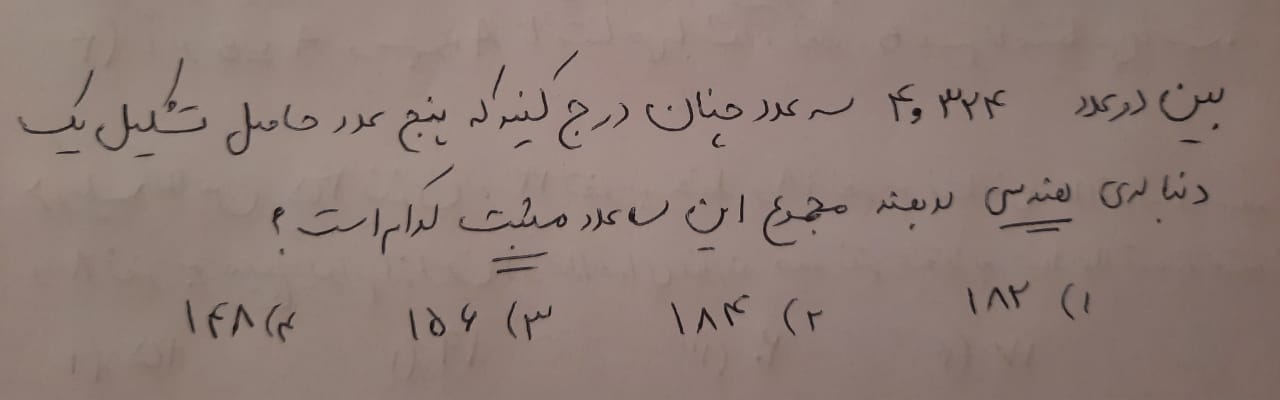 بین دو عدد ۳۲۴ و ۴ سه عدد چنان درج کنید که پنج عدد حاصل تشکیل یک
دنباله‌ی هندسی بدهند مجموع این سه عدد مثبت کدام است؟
۱) ۱۸۲ ۲) ۱۸۴ ۳) ۱۵۶ ۴) ۱۴۸